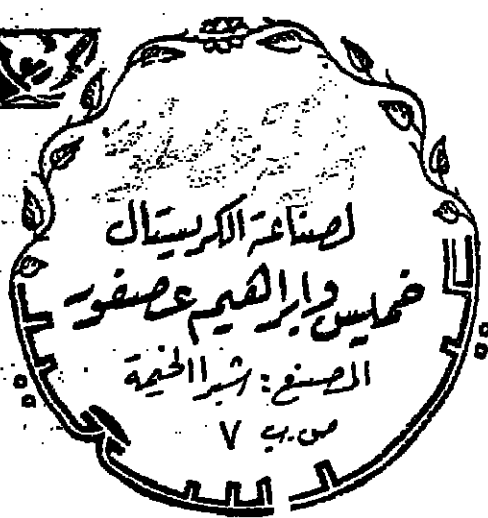 لصناعة الكريستال
خميس وابراهيم عصفور
المصنع : شبرا الخيمة
ص . ب ٧